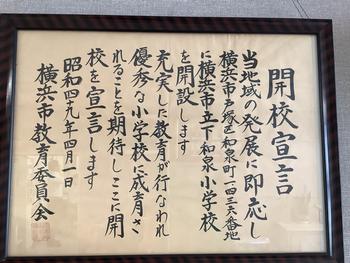 開校宣言
当地域の発展に即応し
横浜市戸塚区和泉町一四三六番地
に横浜市立下和泉小学校
を開設します
充実した教育が行なわれ
優秀な小学校に成育さ
れることを期待しここに開
校を宣言します
昭和四十九年四月一日
横浜市教育委員会